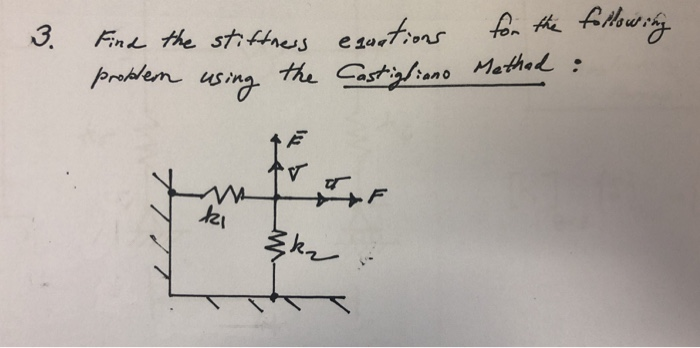 3. Find the stiffness equations for the following
problem using the Castigliano Method :
F̄
v
u
F
k1
k2